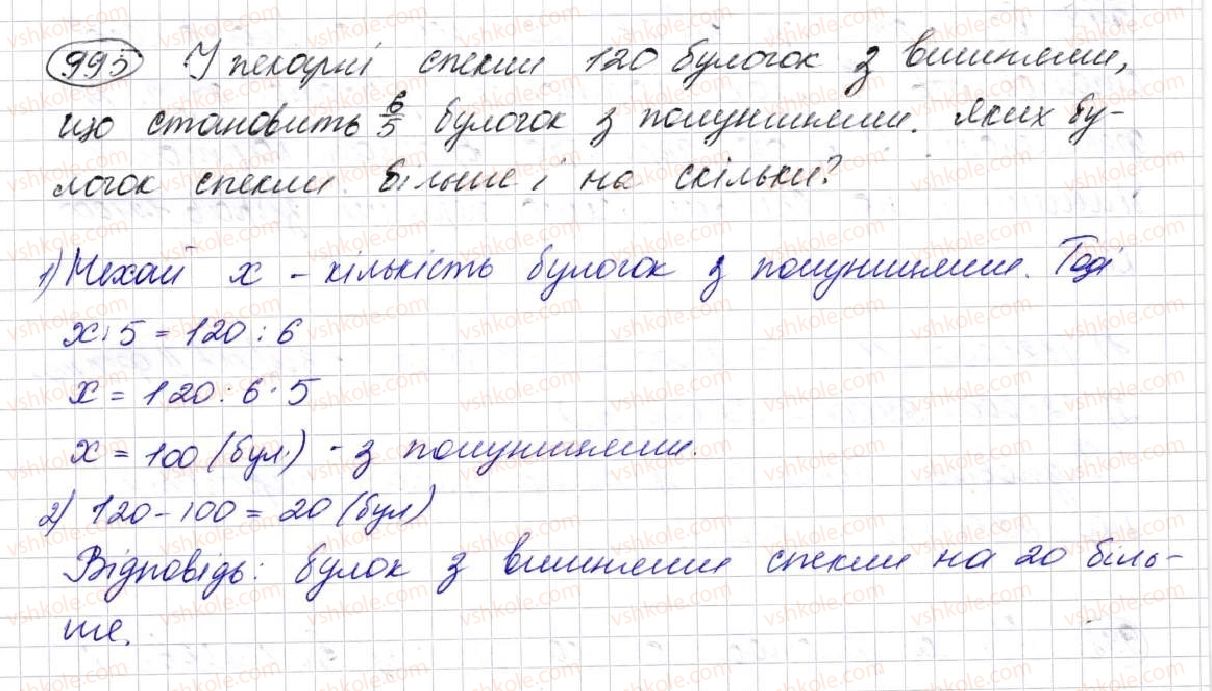 995 У пекарні спекли 120 булочок з вишнями,
що становить 6/5 булочок з полуницями. Яких бу-
лочок спекли більше і на скільки?
1) Нехай x - кількість булочок з полуницями. Тоді
x : 5 = 120 : 6
x = 120 : 6 · 5
x = 100 (бул.) - з полуницями.
2) 120 - 100 = 20 (бул)
Відповідь: булок з вишнями спекли на 20 біль-
ше.